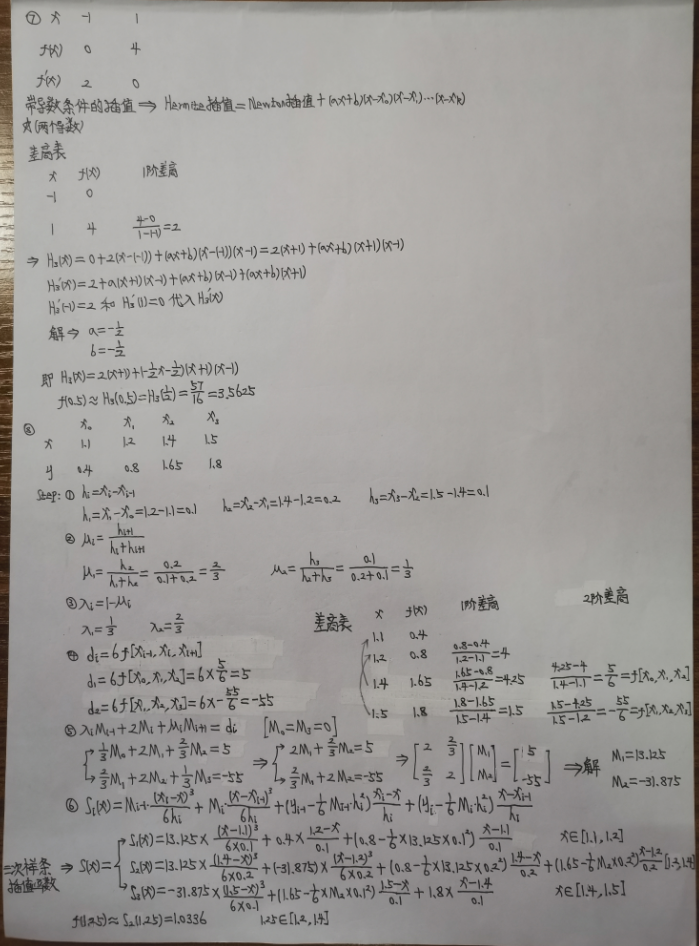 ⑦ x -1 1
f(x) 0 4
f'(x) 2 0
带导数条件的插值 ⇒ Hermite插值=Newton插值+(ax+b)(x-x₀)(x-x₁)…(x-xₖ)
(两个导数)
差商表
x f(x) 1阶差商
-1 0
1 4 (4-0)/(1-(-1))=2
⇒ H₃(x)=0+2(x-(-1))+(ax+b)(x-(-1))(x-1)=2(x+1)+(ax+b)(x+1)(x-1)
H₃'(x)=2+a(x+1)(x-1)+(ax+b)(x-1)+(ax+b)(x+1)
H₃'(-1)=2 和 H₃'(1)=0 代入 H₃'(x)
解⇒ a=-1/2
b=-1/2
即 H₃(x)=2(x+1)+(-1/2x-1/2)(x+1)(x-1)
f(0.5)≈H₃(0.5)=H₃(1/2)=57/16=3.5625
⑧ x₀ x₁ x₂ x₃
x 1.1 1.2 1.4 1.5
y 0.4 0.8 1.65 1.8
Step: ① hᵢ=xᵢ-xᵢ₋₁
h₁=x₁-x₀=1.2-1.1=0.1 h₂=x₂-x₁=1.4-1.2=0.2 h₃=x₃-x₂=1.5-1.4=0.1
② μᵢ=hᵢ₊₁/(hᵢ+hᵢ₊₁)
μ₁=h₂/(h₁+h₂)=0.2/(0.1+0.2)=2/3 μ₂=h₃/(h₂+h₃)=0.1/(0.2+0.1)=1/3
③ λᵢ=1-μᵢ
λ₁=1/3 λ₂=2/3
差商表 x f(x) 1阶差商 2阶差商
1.1 0.4
1.2 0.8 (0.8-0.4)/(1.2-1.1)=4
1.4 1.65 (1.65-0.8)/(1.4-1.2)=4.25 (4.25-4)/(1.4-1.1)=5/6=f[x₀,x₁,x₂]
1.5 1.8 (1.8-1.65)/(1.5-1.4)=1.5 (1.5-4.25)/(1.5-1.2)=-55/6=f[x₁,x₂,x₃]
④ dᵢ=6f[xᵢ₋₁,xᵢ,xᵢ₊₁]
d₁=6f[x₀,x₁,x₂]=6×5/6=5
d₂=6f[x₁,x₂,x₃]=6×-55/6=-55
⑤ λᵢMᵢ₋₁+2Mᵢ+μᵢMᵢ₊₁=dᵢ [M₀=M₃=0]
{1/3M₀+2M₁+2/3M₂=5 ⇒ {2M₁+2/3M₂=5 ⇒ [2 2/3][M₁]=[5] ⇒解 M₁=13.125
{2/3M₁+2M₂+1/3M₃=-55 {2/3M₁+2M₂=-55 [2/3 2][M₂] [-55] M₂=-31.875
⑥ Sᵢ(x)=Mᵢ₋₁·(xᵢ-x)³/6hᵢ+Mᵢ·(x-xᵢ₋₁)³/6hᵢ+(yᵢ₋₁-1/6Mᵢ₋₁·hᵢ²)(xᵢ-x)/hᵢ+(yᵢ-1/6Mᵢ·hᵢ²)(x-xᵢ₋₁)/hᵢ
S₁(x)=13.125×(x-1.1)³/(6×0.1)+0.4×(1.2-x)/0.1+(0.8-1/6×13.125×0.1²)(x-1.1)/0.1 x∈[1.1,1.2]
三次样条插值函数 ⇒ S(x)={S₂(x)=13.125×(1.4-x)³/(6×0.2)+(-31.875)×(x-1.2)³/(6×0.2)+(0.8-1/6×13.125×0.2²)(1.4-x)/0.2+(1.65-1/6M₂×0.2²)(x-1.2)/0.2 [1.2,1.4]
S₃(x)=-31.875×(1.5-x)³/(6×0.1)+(1.65-1/6M₂×0.1²)(1.5-x)/0.1+1.8×(x-1.4)/0.1 x∈[1.4,1.5]
f(1.25)≈S₂(1.25)=1.0336 1.25∈[1.2,1.4]